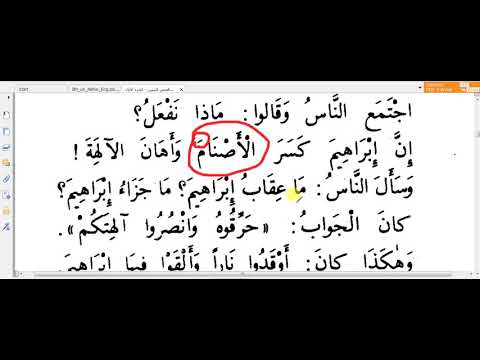 Start
اجْتَمَعَ النَّاسُ وَقَالُوا: مَاذَا نَفْعَلُ؟
إِنَّ إِبْرَاهِيمَ كَسَرَ الْأَصْنَامَ وَأَهَانَ الْآلِهَةَ !
وَسَأَلَ النَّاسُ: مَا عِقَابُ إِبْرَاهِيمَ؟ مَا جَزَاءُ إِبْرَاهِيمَ؟
كَانَ الْجَوَابُ: «حَرِّقُوهُ وَانْصُرُوا آلِهَتَكُمْ».
وَهٰكَذَا كَانَ: أَوْقَدُوا نَاراً وَأَلْقَوْا فِيهَا إِبْرَاهِيمَ.